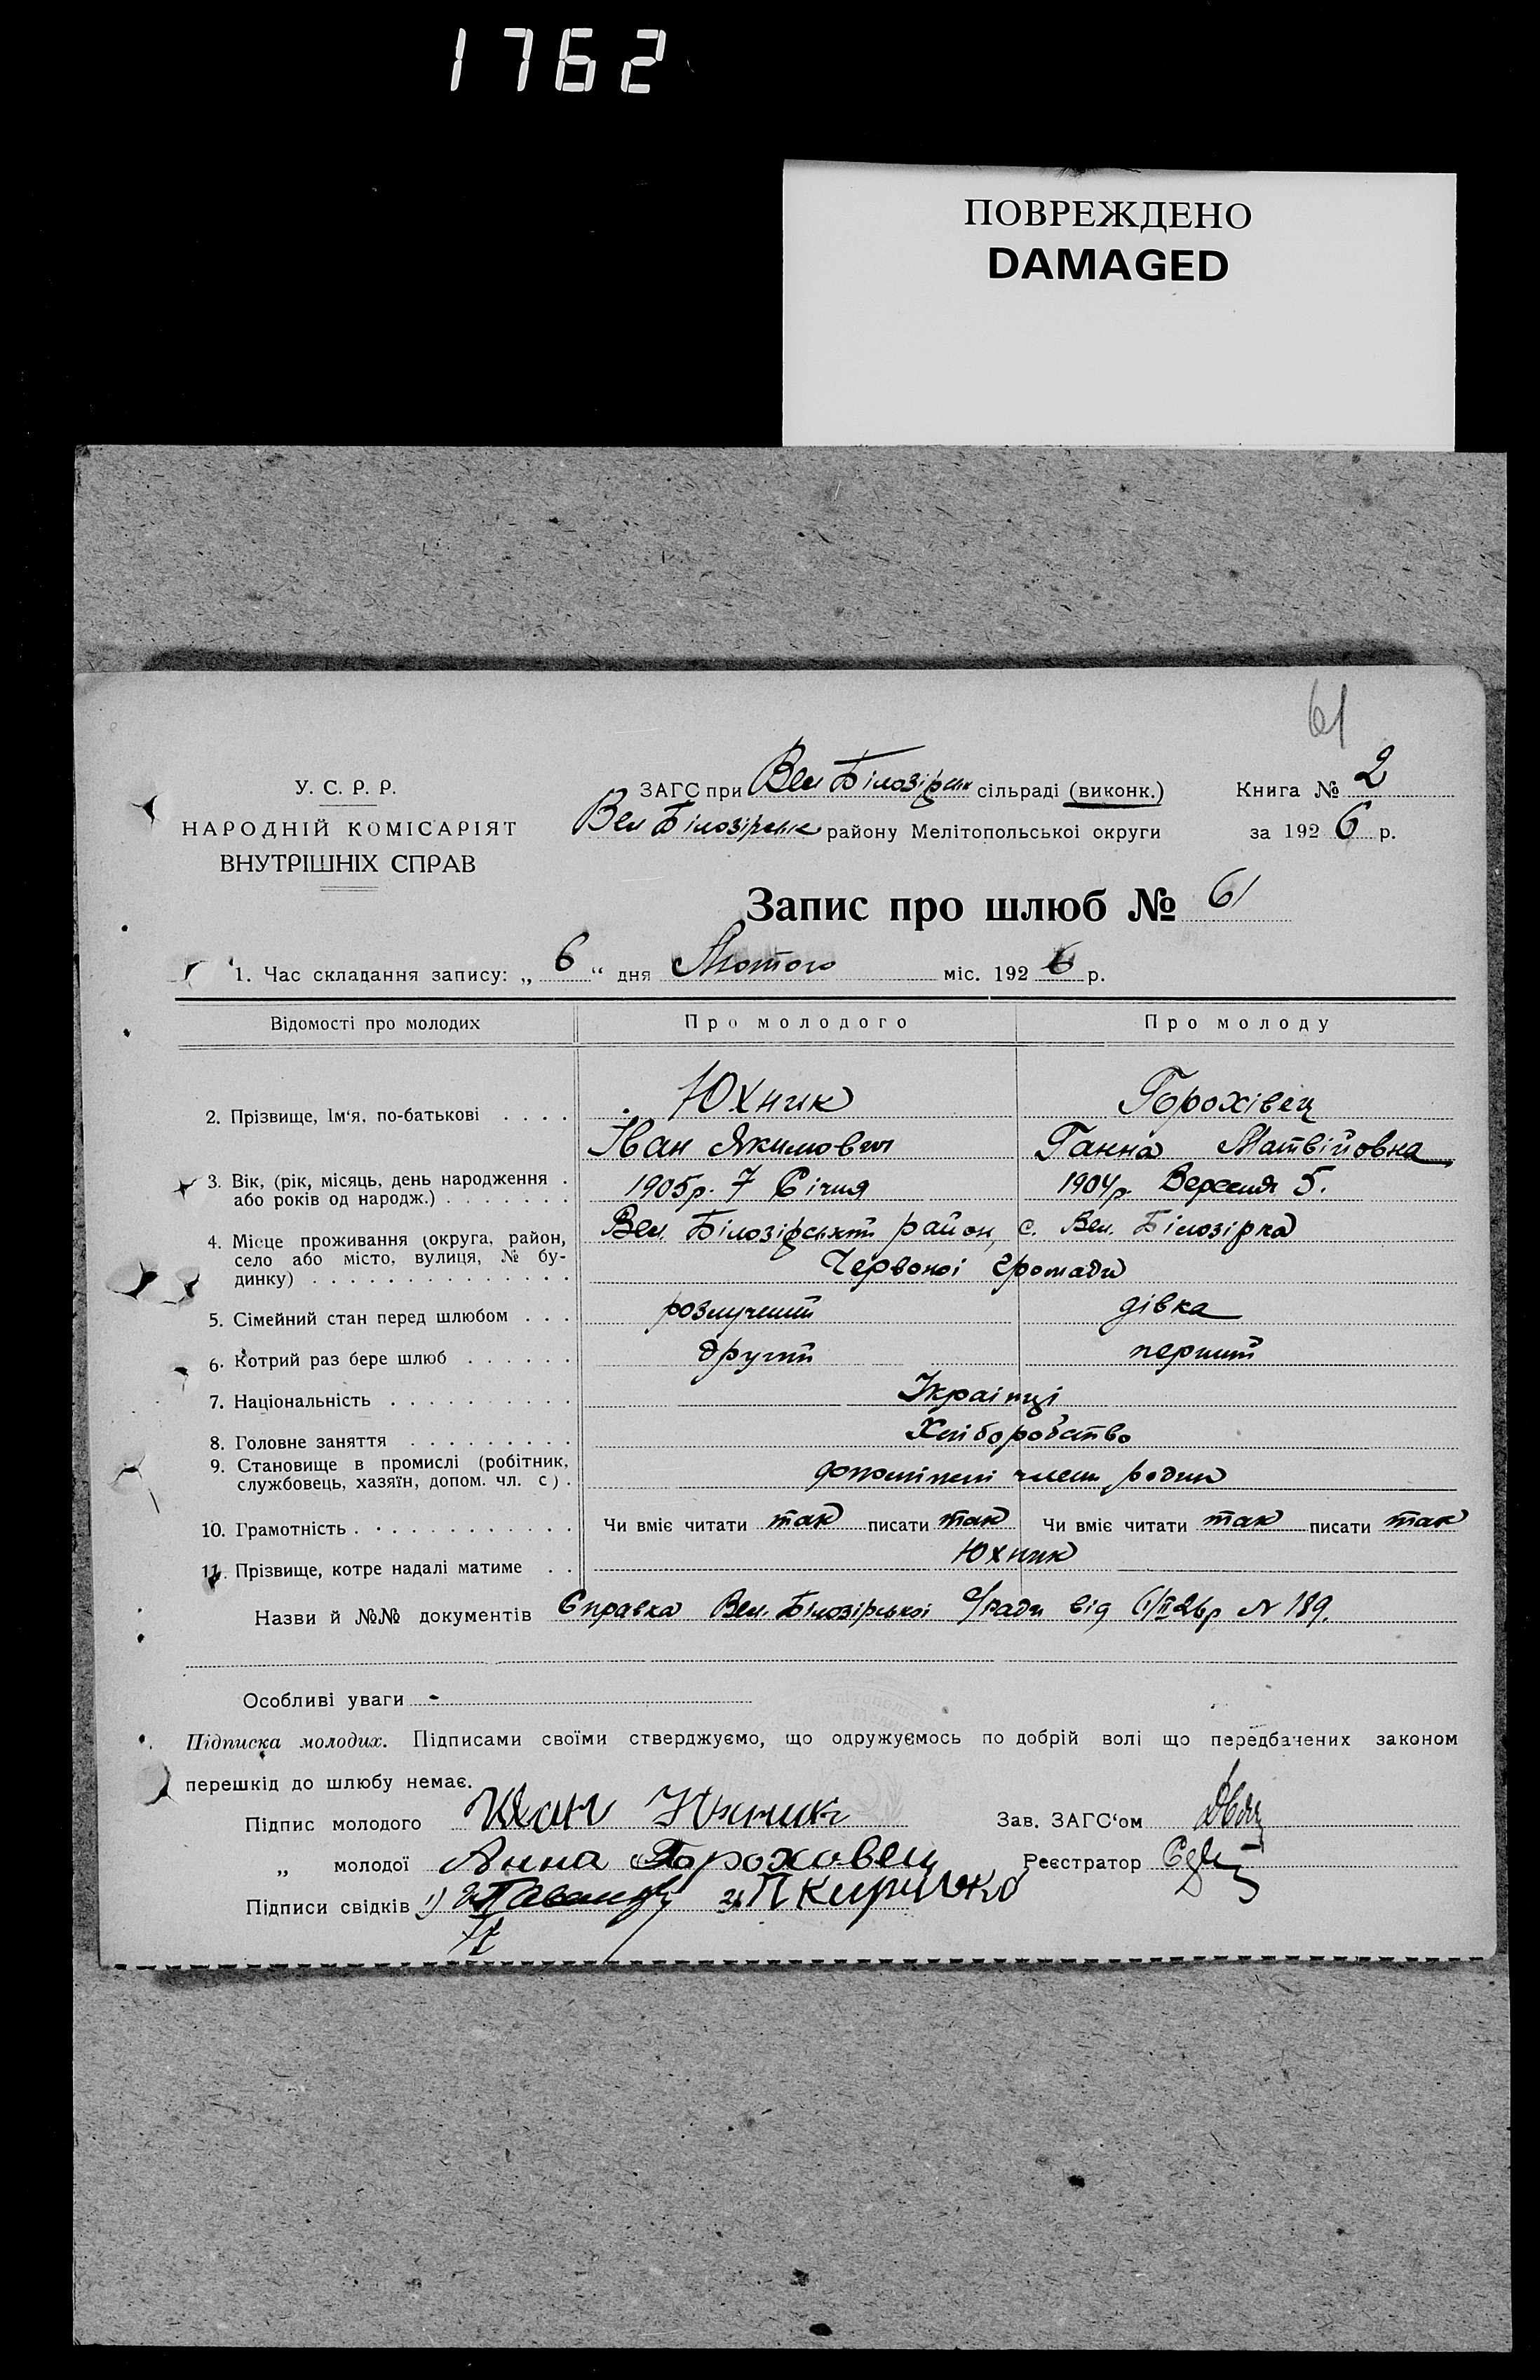 1762
ПОВРЕЖДЕНО
DAMAGED
61
У. С. Р. Р.
НАРОДНІЙ КОМІСАРІЯТ
ВНУТРІШНІХ СПРАВ
ЗАГС при Вел Білозірськ сільраді (виконк.)
Вел Білозірське району Мелітопольської округи
Книга № 2
за 1926 р.
Запис про шлюб № 61
1. Час складання запису: „ 6 “ дня Лютого міс. 1926 р.
Відомості про молодих Про молодого Про молоду
2. Прізвище, Ім‘я, по-батькові . . . . Юхник Горохівец
Іван Якимович Ганна Матвійовна
3. Вік, (рік, місяць, день народження .
або років од народж.) . . . . . . . 1905р. 7 Січня 1904р. Вересня 5.
4. Місце проживання (округа, район,
село або місто, вулиця, № бу-
динку) . . . . . . . . . . . . . .
Вел. Білозірський район, с. Вел. Білозірка
Червоної громади
5. Сімейний стан перед шлюбом . . . розлучений дівка
6. Котрий раз бере шлюб . . . . . . другий перший
7. Національність . . . . . . . . . . Українці
8. Головне заняття . . . . . . . . . Хліборобство
9. Становище в промислі (робітник,
службовець, хазяїн, допом. чл. с) . члени родин
10. Грамотність . . . . . . . . . . . . Чи вміє читати так писати так Чи вміє читати так писати так
11. Прізвище, котре надалі матиме . . Юхник
Назви й №№ документів Справка Вел. Білозірської с/ради від 26р N 189.
Особливі уваги -
Підписка молодих. Підписами своїми стверджуємо, що одружуємось по добрій волі що передбачених законом
перешкід до шлюбу немає.
Підпис молодого Иван Юхник
Зав. ЗАГС‘ом
„ молодої Анна Гороховец
Реєстратор
Підписи свідків 1) 2) П Кириченко